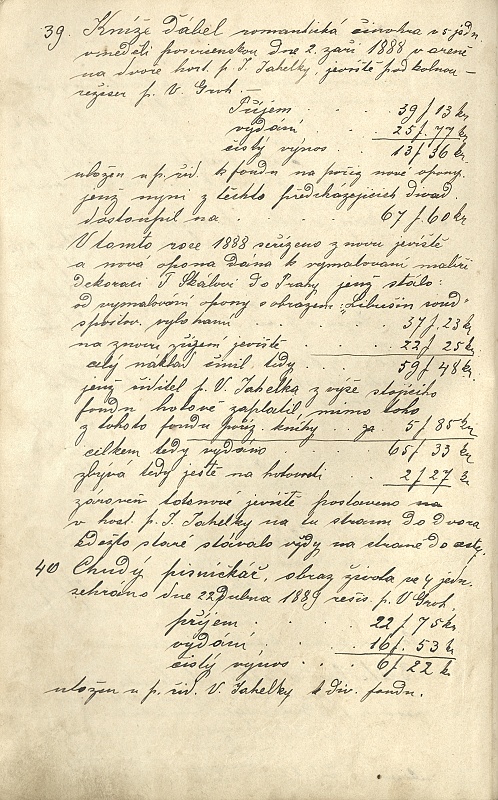 39 Kníže Ďábel romantická činohra v 5 jedn.
v neděli posvícenskou dne 2. září 1888 v areně
na dvoře host. p. J. Jahelky, jeviště pod kolnou –
režiser p. V. Groh. –
Příjem . . . 39 f 13 kr
vydání . . . 25 f. 77 kr
čistý výnos . . . 13 f 36 kr
uložen u p. řid. k fondu na pořiz nové opony.
jenž nyní z těchto předcházejících divad.
dostoupil na . . . 67 f. 60 kr
V tomto roce 1888 seřízeno z novu jeviště
a nová opona dána k vymalování malíři
dekorací T Skálovi do Prahy jenž stálo:
od vymalování opony s obrazem: „Libušin soud"
spolu vylohami . . . 37 f. 23 kr
na znovu zřízení jeviště . . . 22 f 25 kr
celý náklad činil tedy . . . 59 f 48 kr
jenž řiditel p. V. Jahelka z výše stojícího
fondu hotově zaplatil, mimo toho
z tohoto fondu poříz. knihy za 5 f 85 kr
celkem tedy vydáno . . . 65 f 33 kr
zbývá tedy ještě na hotovosti . . . 2 f 27 kr
zároveň toto nové jeviště postaveno na
v host. p. J. Jahelky na tu stranu do dvora
kdežto staré stávalo vždy na straně do cesty.
40 Chudý písničkář, obraz života ve 4 jedn.
sehráno dne 22 Dubna 1889 režis. p. V Groh.
příjem . . . 22 f 75 kr
vydání . . . 16 f. 53 kr
čistý výnos . . . 6 f 22 kr
uložen u p. řid. V. Jahelky k div. fondu.